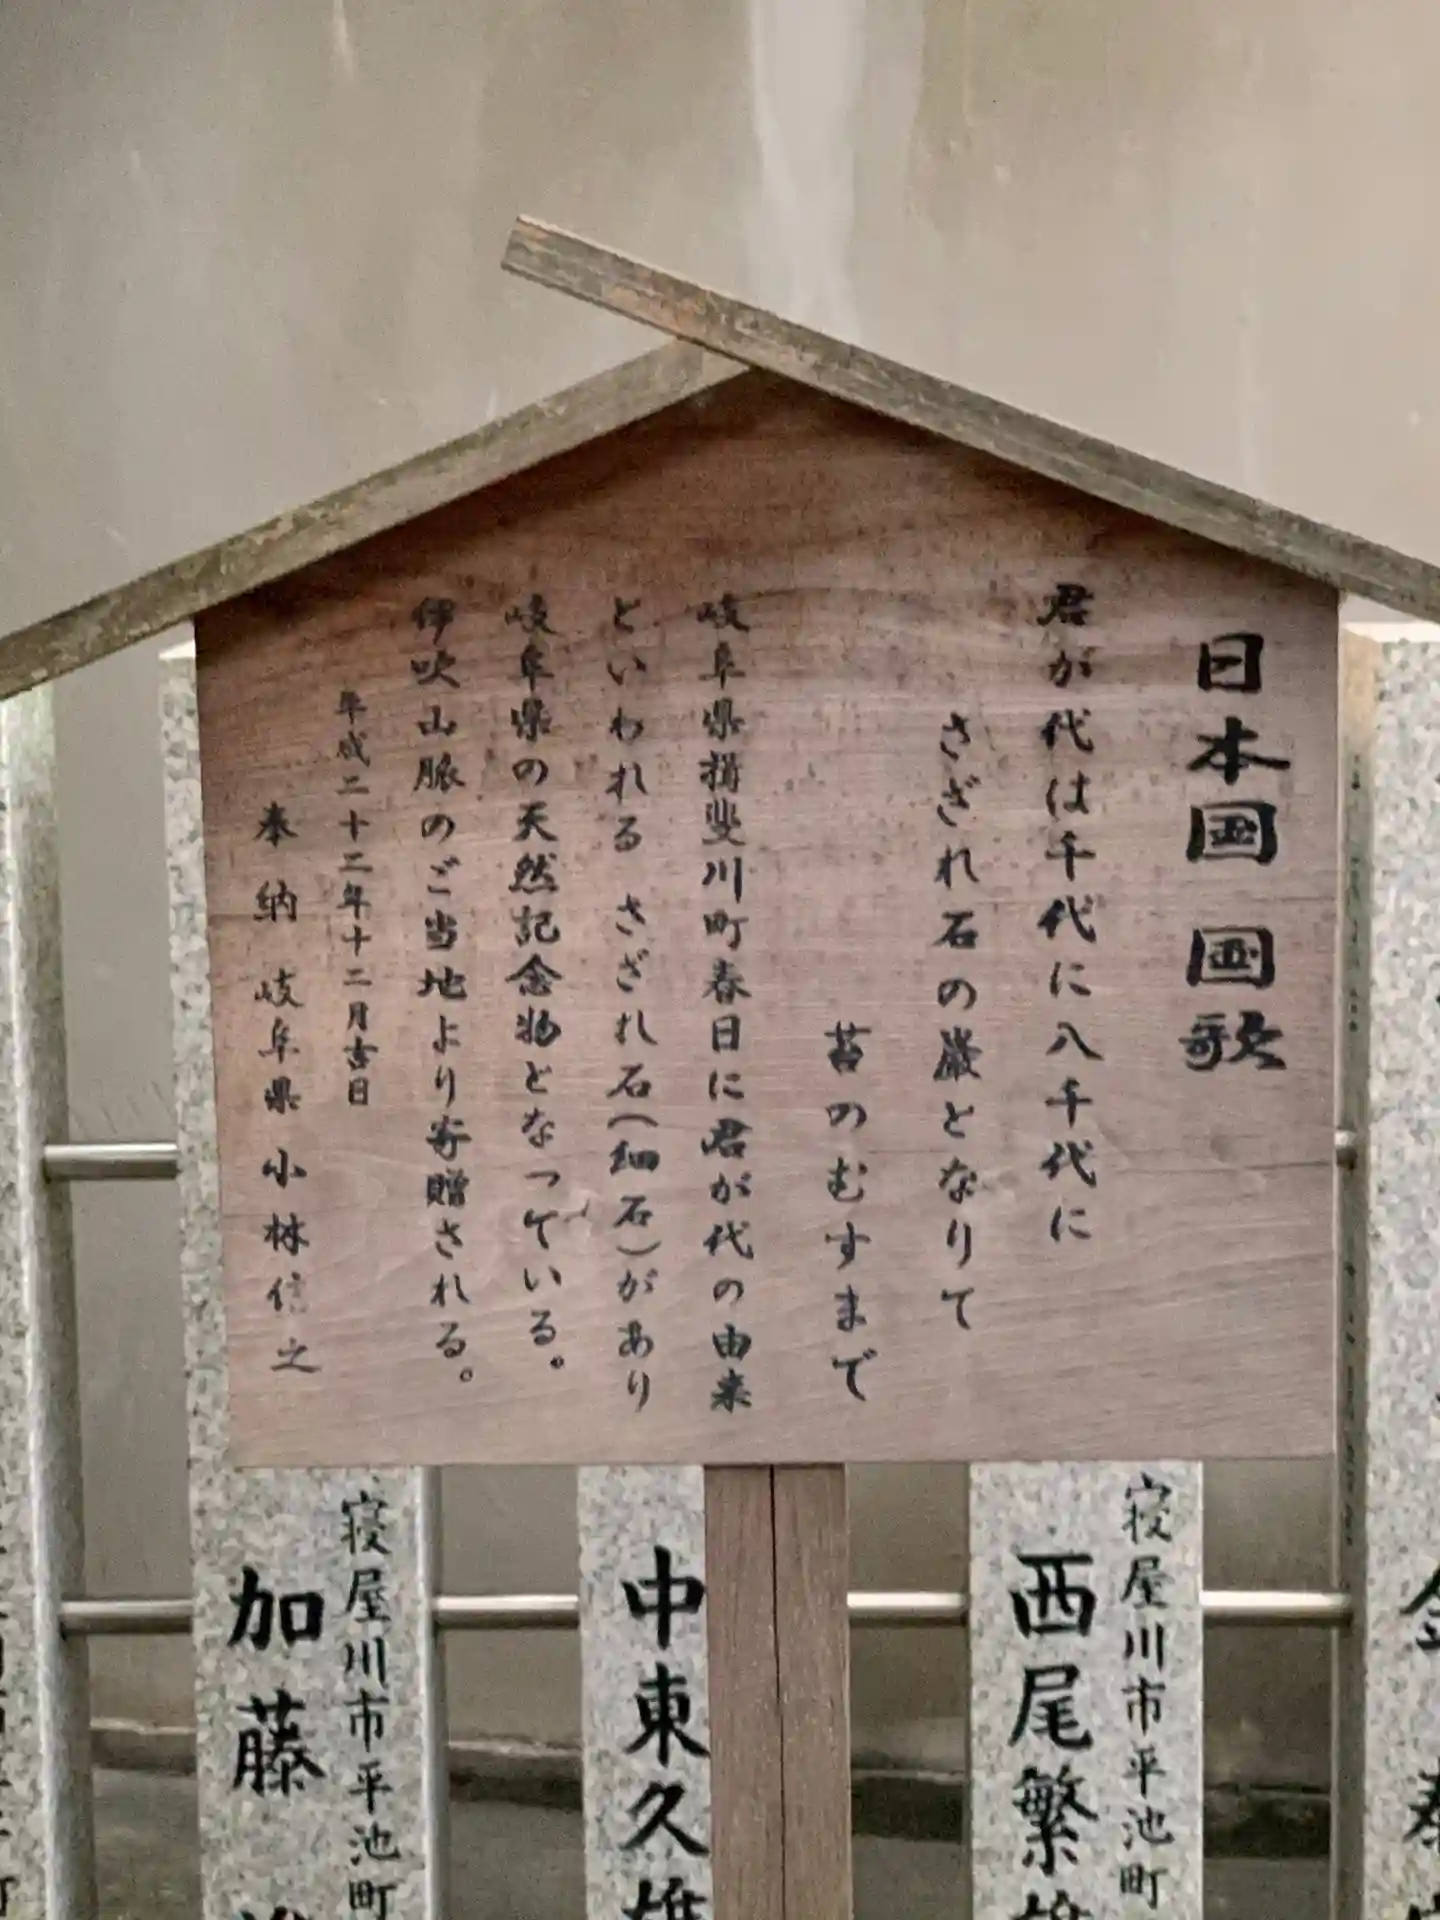 日本国 国歌
君が代は千代に八千代に
さざれ石の巌となりて
苔のむすまで
岐阜県揖斐川町春日に君が代の由来
といわれる さざれ石(細石)があり
岐阜県の天然記念物となっている。
伊吹山脈のご当地より寄贈される。
平成二十二年十二月吉日
奉納 岐阜県 小林信之
寝屋川市平池町
西尾繁雄
中東久雄
寝屋川市平池町
加藤